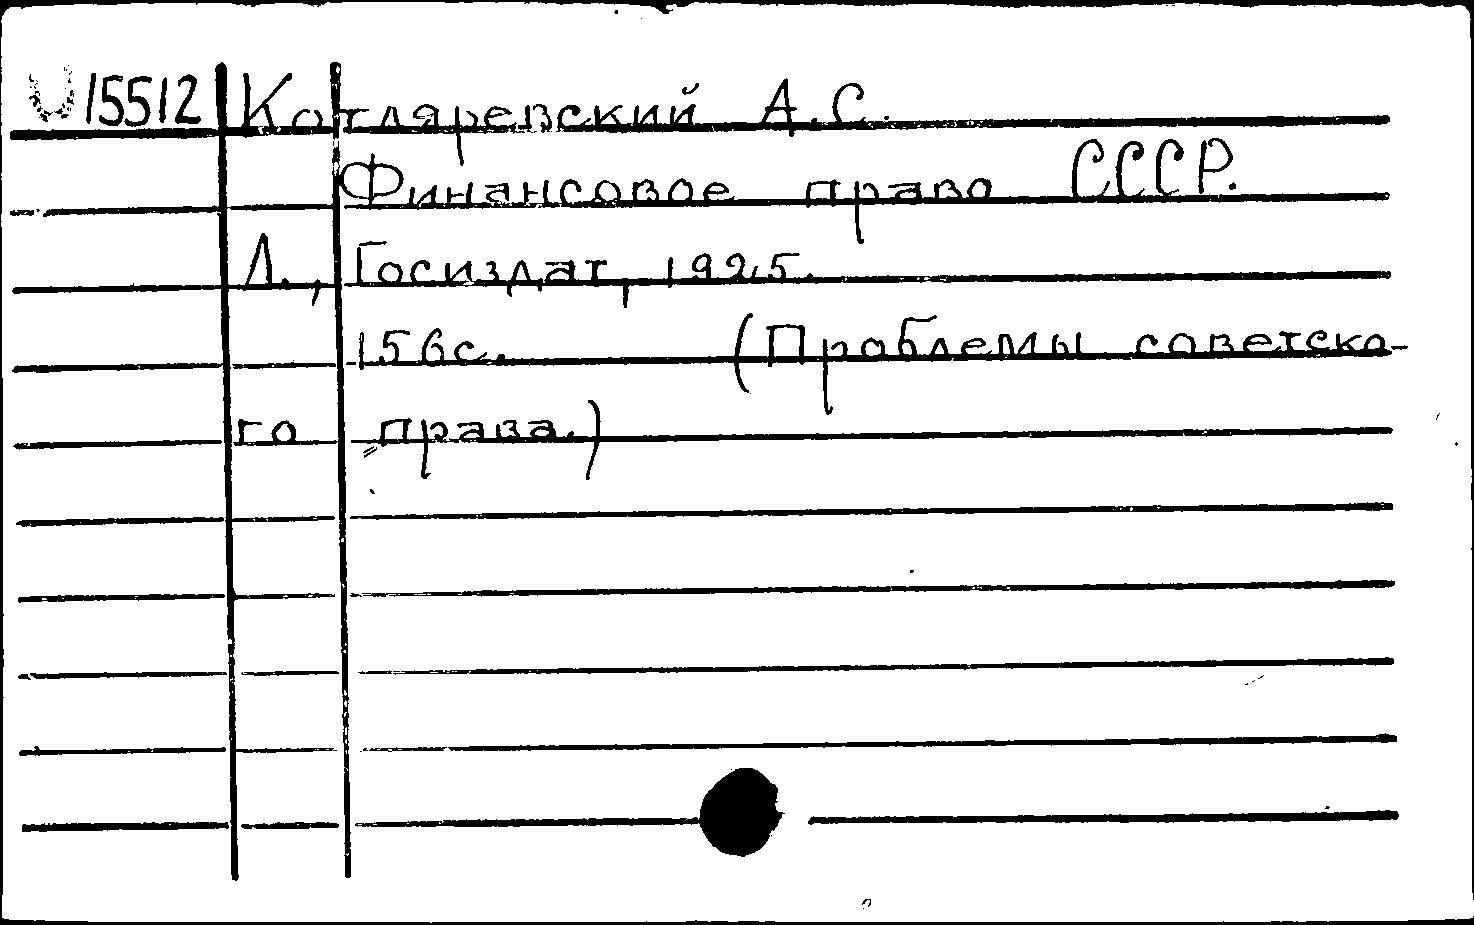 U 15512 Котляревский А.С.
Финансовое право СССР.
Л., Госиздат, 1925.
156с. (Проблемы советско-
го права.)